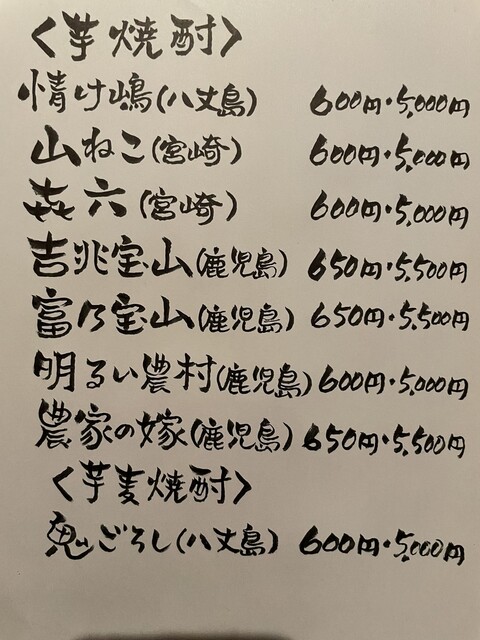 〈芋焼酎〉
情け嶋(八丈島) 600円・5,000円
山ねこ(宮崎) 600円・5,000円
㐂六(宮崎) 600円・5,000円
吉兆宝山(鹿児島) 650円・5,500円
富乃宝山(鹿児島) 650円・5,500円
明るい農村(鹿児島) 600円・5,000円
農家の嫁(鹿児島) 650円・5,500円
〈芋麦焼酎〉
鬼ごろし(八丈島) 600円・5,000円